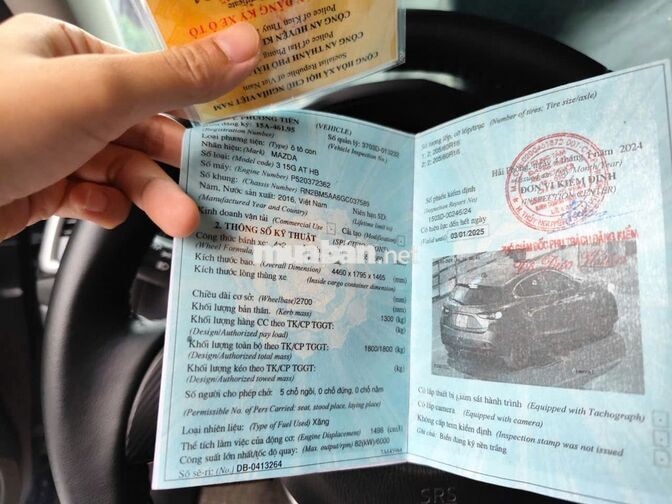 CỘNG HÒA XÃ HỘI CHỦ NGHĨA VIỆT NAM
Socialist Republic of Viet Nam
CÔNG AN THÀNH PHỐ HẢI
Police of Hai Phong
CÔNG AN HUYỆN KI
Police of Kien Thuy
ĐĂNG KÝ XE Ô TÔ
PHƯƠNG TIỆN (VEHICLE)
15A-461.95 Số quản lý: 3703D-013232
(Registration Number) (Vehicle Inspection No.)
Loại phương tiện: (Type) ô tô con
Nhãn hiệu: (Mark) MAZDA
Số loại: (Model code) 3 15G AT HB
Số máy: (Engine Number) P520372362
Số khung: (Chassis Number) RN2BM5AA6GC037589
Năm, Nước sản xuất: 2016, Việt Nam Niên hạn SD:
(Manufactured Year and Country) (Lifetime limit to)
Kinh doanh vận tải (Commercial Use) Cải tạo (Modification)
2. THÔNG SỐ KỸ THUẬT
Công thức bánh xe:
(Wheel Formula)
Kích thước bao: (Overall Dimension) 4460 x 1795 x 1465 (mm)
Kích thước lòng thùng xe (mm)
(Inside cargo container dimension)
Chiều dài cơ sở: (Wheelbase) 2700 (mm)
Khối lượng bản thân: (Kerb mass) 1300 (kg)
Khối lượng hàng CC theo TK/CP TGGT: (kg)
(Design/Authorized pay load)
Khối lượng toàn bộ theo TK/CP TGGT: 1800/1800 (kg)
(Design/Authorized total mass)
Khối lượng kéo theo TK/CP TGGT: (kg)
(Design/Authorized towed mass)
Số người cho phép chở: 5 chỗ ngồi, 0 chỗ đứng, 0 chỗ nằm
(Permissible No. of Pers Carried: seat, stood place, laying place)
Loại nhiên liệu: (Type of Fuel Used) Xăng
Thể tích làm việc của động cơ: (Engine Displacement) 1496 (cm3)
Công suất lớn nhất/tốc độ quay: (Max. output/rpm) 82(kW)/6000
Số sê-ri: (No.) DB-0413264
Số lượng lốp, cỡ lốp/trục (Number of tires; Tire size/axle)
1: 2; 205/60R16
2: 2; 205/60R16
Số phiếu kiểm định
(Inspection Report No)
1503D-00245/24
Có hiệu lực đến hết ngày
(Valid until) 03/01/2025
Hải Phòng, ngày 4 tháng 1 năm 2024
ĐƠN VỊ KIỂM ĐỊNH
(INSPECTION CENTER)
PHÓ GIÁM ĐỐC PHỤ TRÁCH ĐĂNG KIỂM
muaban.net
Có lắp thiết bị giám sát hành trình (Equipped with Tachograph)
Có lắp camera (Equipped with camera)
Không cấp tem kiểm định (Inspection stamp was not issued)
Ghi chú: Biển đăng ký nền trắng
SRS